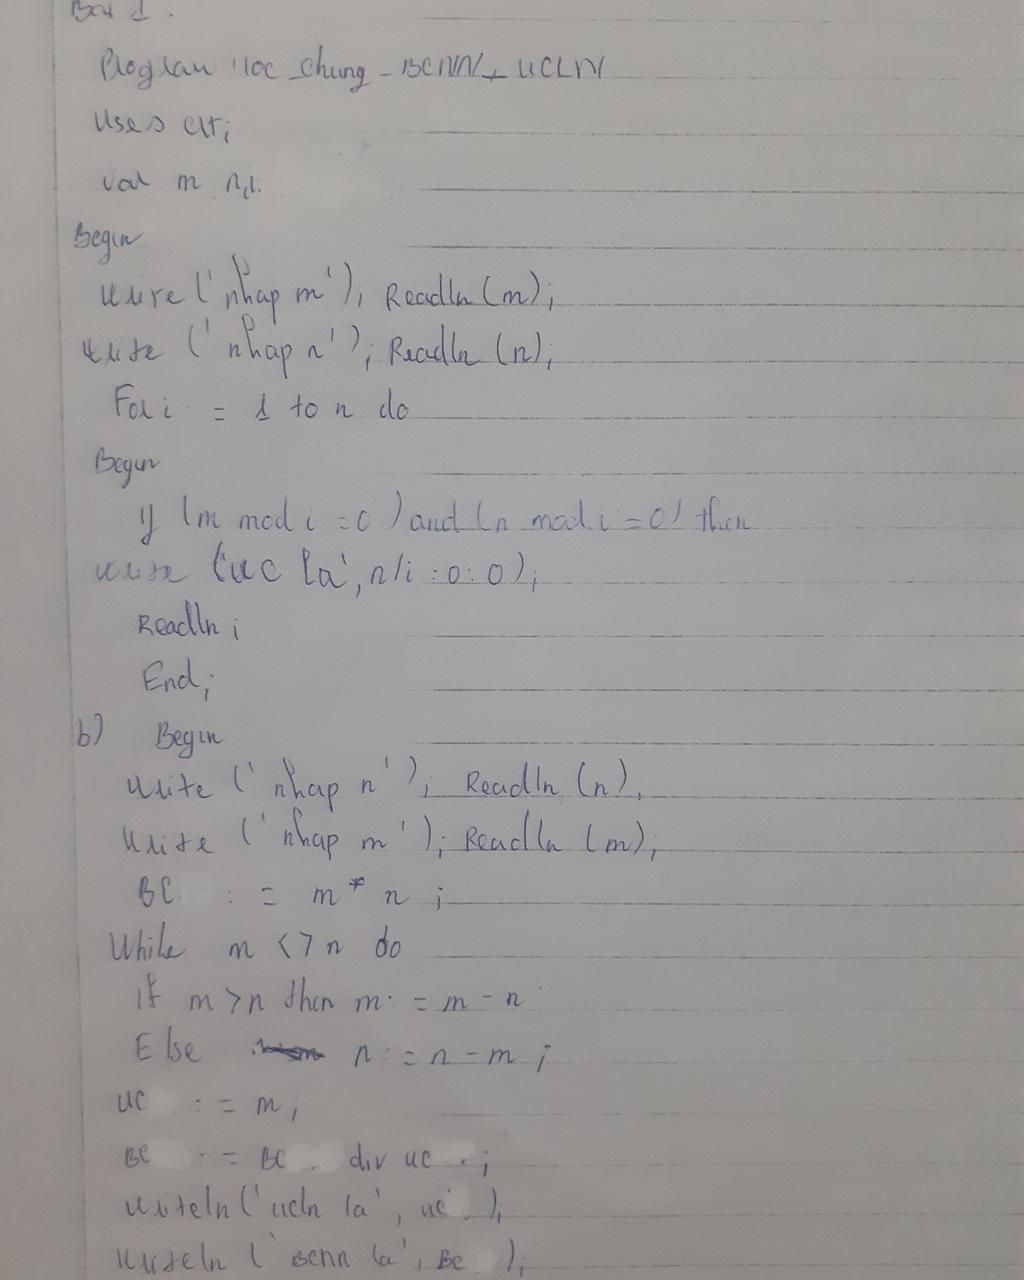 Bài 1.
Program uoc_chung_BCNN_UCLN
Uses crt;
var m n,i:
Begin
write ('nhap m'); Readln (m);
write ('nhap n'); Readln (n);
For i := 1 to n do
Begin
If (m mod i =0) and (n mod i =0) then
write ('uc la', n/i :0:0);
Readln;
End;
b) Begin
write ('nhap n'); Readln (n);
write ('nhap m'); Readln (m);
BC := m * n ;
While m <> n do
If m > n then m := m - n
Else n := n - m ;
uc := m;
BC := BC div uc ;
writeln ('ucln la', uc );
writeln ('Bcnn la', BC );